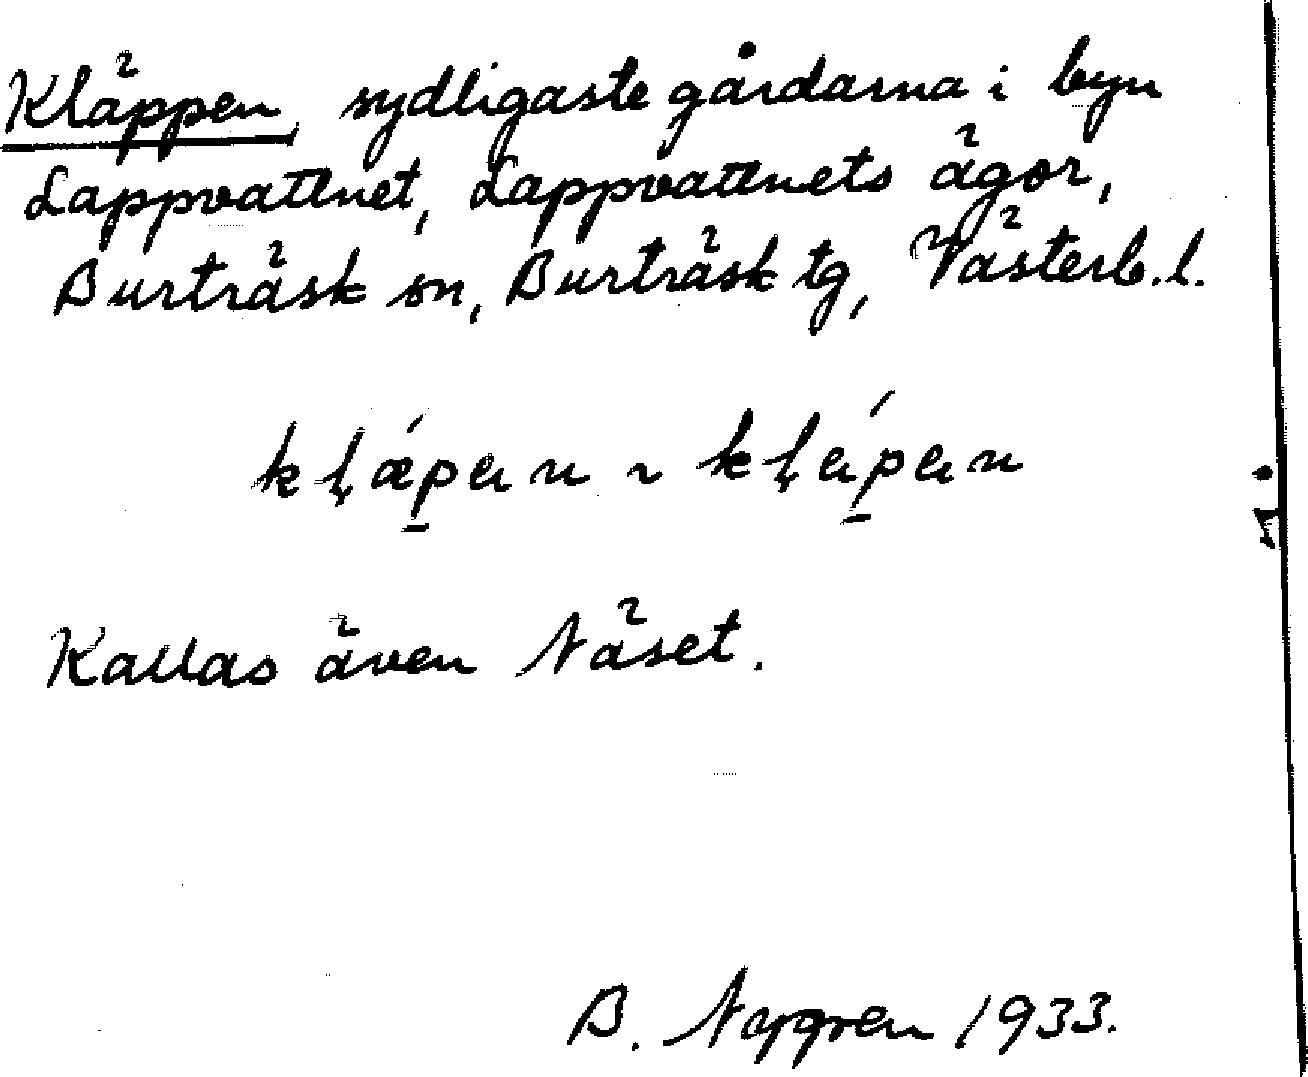 Kläppen, sydligaste gårdarna i byn
Lappvattnet, Lappvattnets ägor,
Burträsk sn, Burträsk tg, Västerb.l.
Kallas även Näset.
B. Nygren 1933.